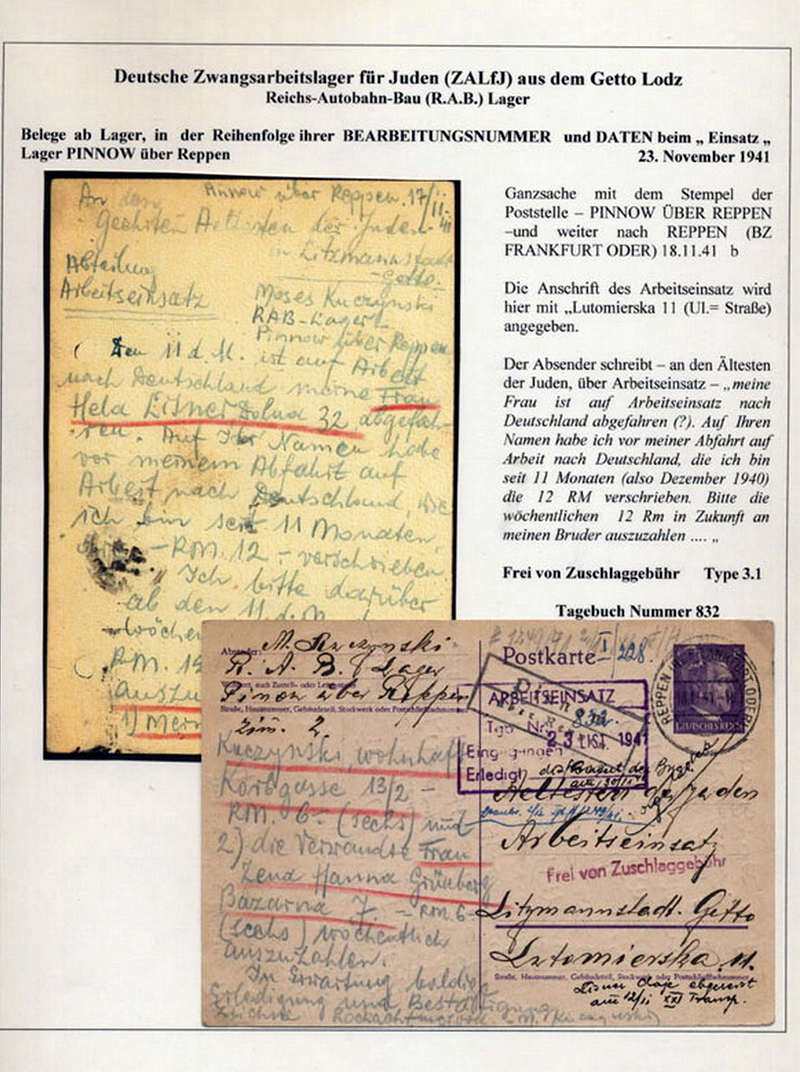 Deutsche Zwangsarbeitslager für Juden (ZALfJ) aus dem Getto Lodz
Reichs-Autobahn-Bau (R.A.B.) Lager
Belege ab Lager, in der Reihenfolge ihrer BEARBEITUNGSNUMMER und DATEN beim „ Einsatz „
Lager PINNOW über Reppen 23. November 1941
An den Pinnow über Reppen. 17/11. 41
Geehrten Aeltesten der Juden
in Litzmannstadt
-Getto.
Abteilung
Arbeitseinsatz
Moses Kuczynski
RAB-Lager
Pinnow über Reppen
Den 11 d. M. ist auf Arbeit
nach Deutschland meine Frau
Hela Lisner Dolna 32 abgefah-
ren. Auf Ihr Namen habe
vor meinem Abfahrt auf
Arbeit nach Deutschland, wie
ich bin seit 11 Monaten
- RM. 12 - verschrieben
Ich bitte darüber
ab den 11 d. M.
wöchen
RM. 1
auszu
1) Mein
Ganzsache mit dem Stempel der
Poststelle – PINNOW ÜBER REPPEN
–und weiter nach REPPEN (BZ
FRANKFURT ODER) 18.11.41 b
Die Anschrift des Arbeitseinsatz wird
hier mit „Lutomierska 11 (Ul.= Straße)
angegeben.
Der Absender schreibt – an den Ältesten
der Juden, über Arbeitseinsatz – „meine
Frau ist auf Arbeitseinsatz nach
Deutschland abgefahren (?). Auf Ihren
Namen habe ich vor meiner Abfahrt auf
Arbeit nach Deutschland, die ich bin
seit 11 Monaten (also Dezember 1940)
die 12 RM verschrieben. Bitte die
wöchentlichen 12 Rm in Zukunft an
meinen Bruder auszuzahlen .... „
Frei von Zuschlaggebühr Type 3.1
Tagebuch Nummer 832
Absender: M. Kuczynski
R. A. B. Lager
Wohnort, auch Zustell- oder Leitpostamt
Pinow über Reppen
Straße, Hausnummer, Gebäudeteil, Stockwerk oder Postschließfachnummer
Zim. 2
Kuczynski, wohnhaft
Korbgasse 13/2 -
RM. 6- (sechs) und
2) die Verwandte Frau
Zena Hanna Grünberg
Bazarna 7. - RM. 6-
(sechs) wöchentlich
auszuzahlen.
In Erwartung baldige
Erledigung und Bestätigung
zeichne Hochachtungsvoll - M. Kuczynski
Postkarte
I/228.
DEUTSCHES REICH
REPPEN (BZ FRANKFURT ODER)
ARBEITSEINSATZ
Tgb. Nr. 832.
Eingegangen 23 LIST. 1941
Erledigt
Aeltesten der Juden
Arbeitseinsatz
Frei von Zuschlaggebühr
Litzmannstadt-Getto
Lutomierska 11.
Straße, Hausnummer, Gebäudeteil, Stockwerk oder Postschließfachnummer
Lisner Chaje abgereist
am 12/11 XXI Transp.